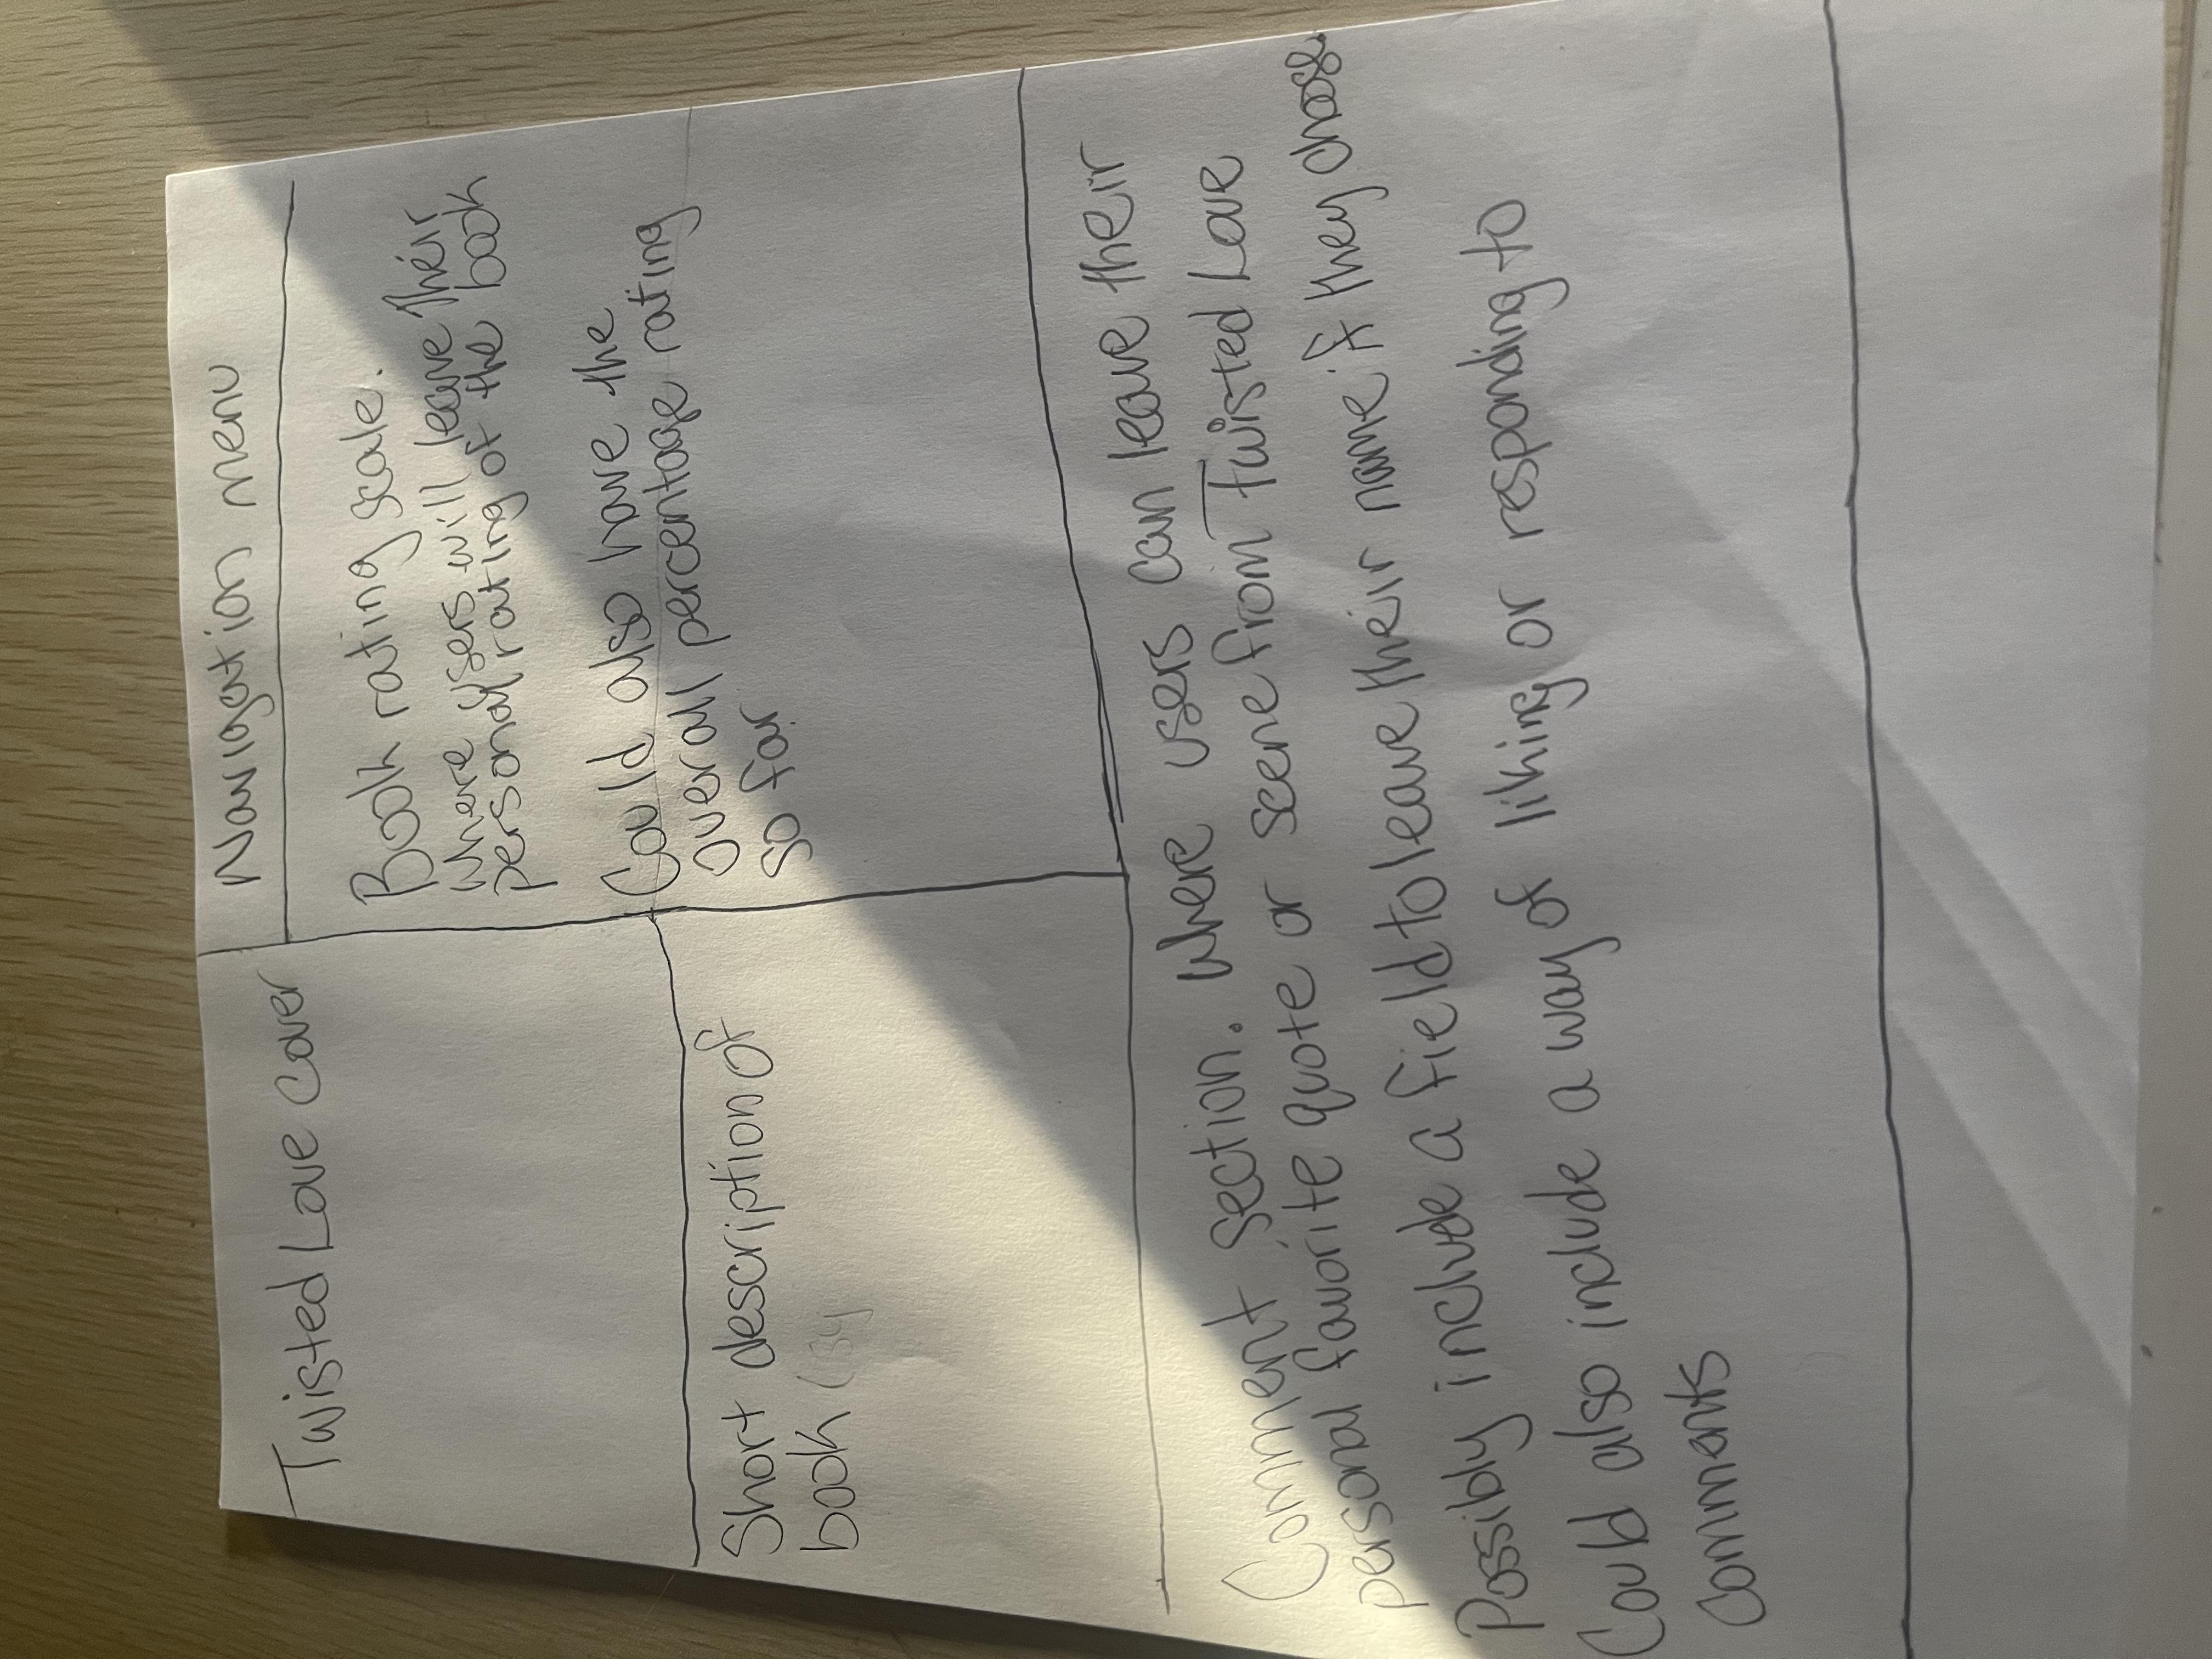 Twisted Love Cover
Navigation menu
Book rating scale.
where users will leave their
personal rating of the book
Could also have the
overall percentage rating
so far
Short description of
book (sy
Comment section. Where users can leave their
personal favorite quote or scene from Twisted Love
Possibly include a field to leave their name if they choose.
Could also include a way of liking or responding to
comments